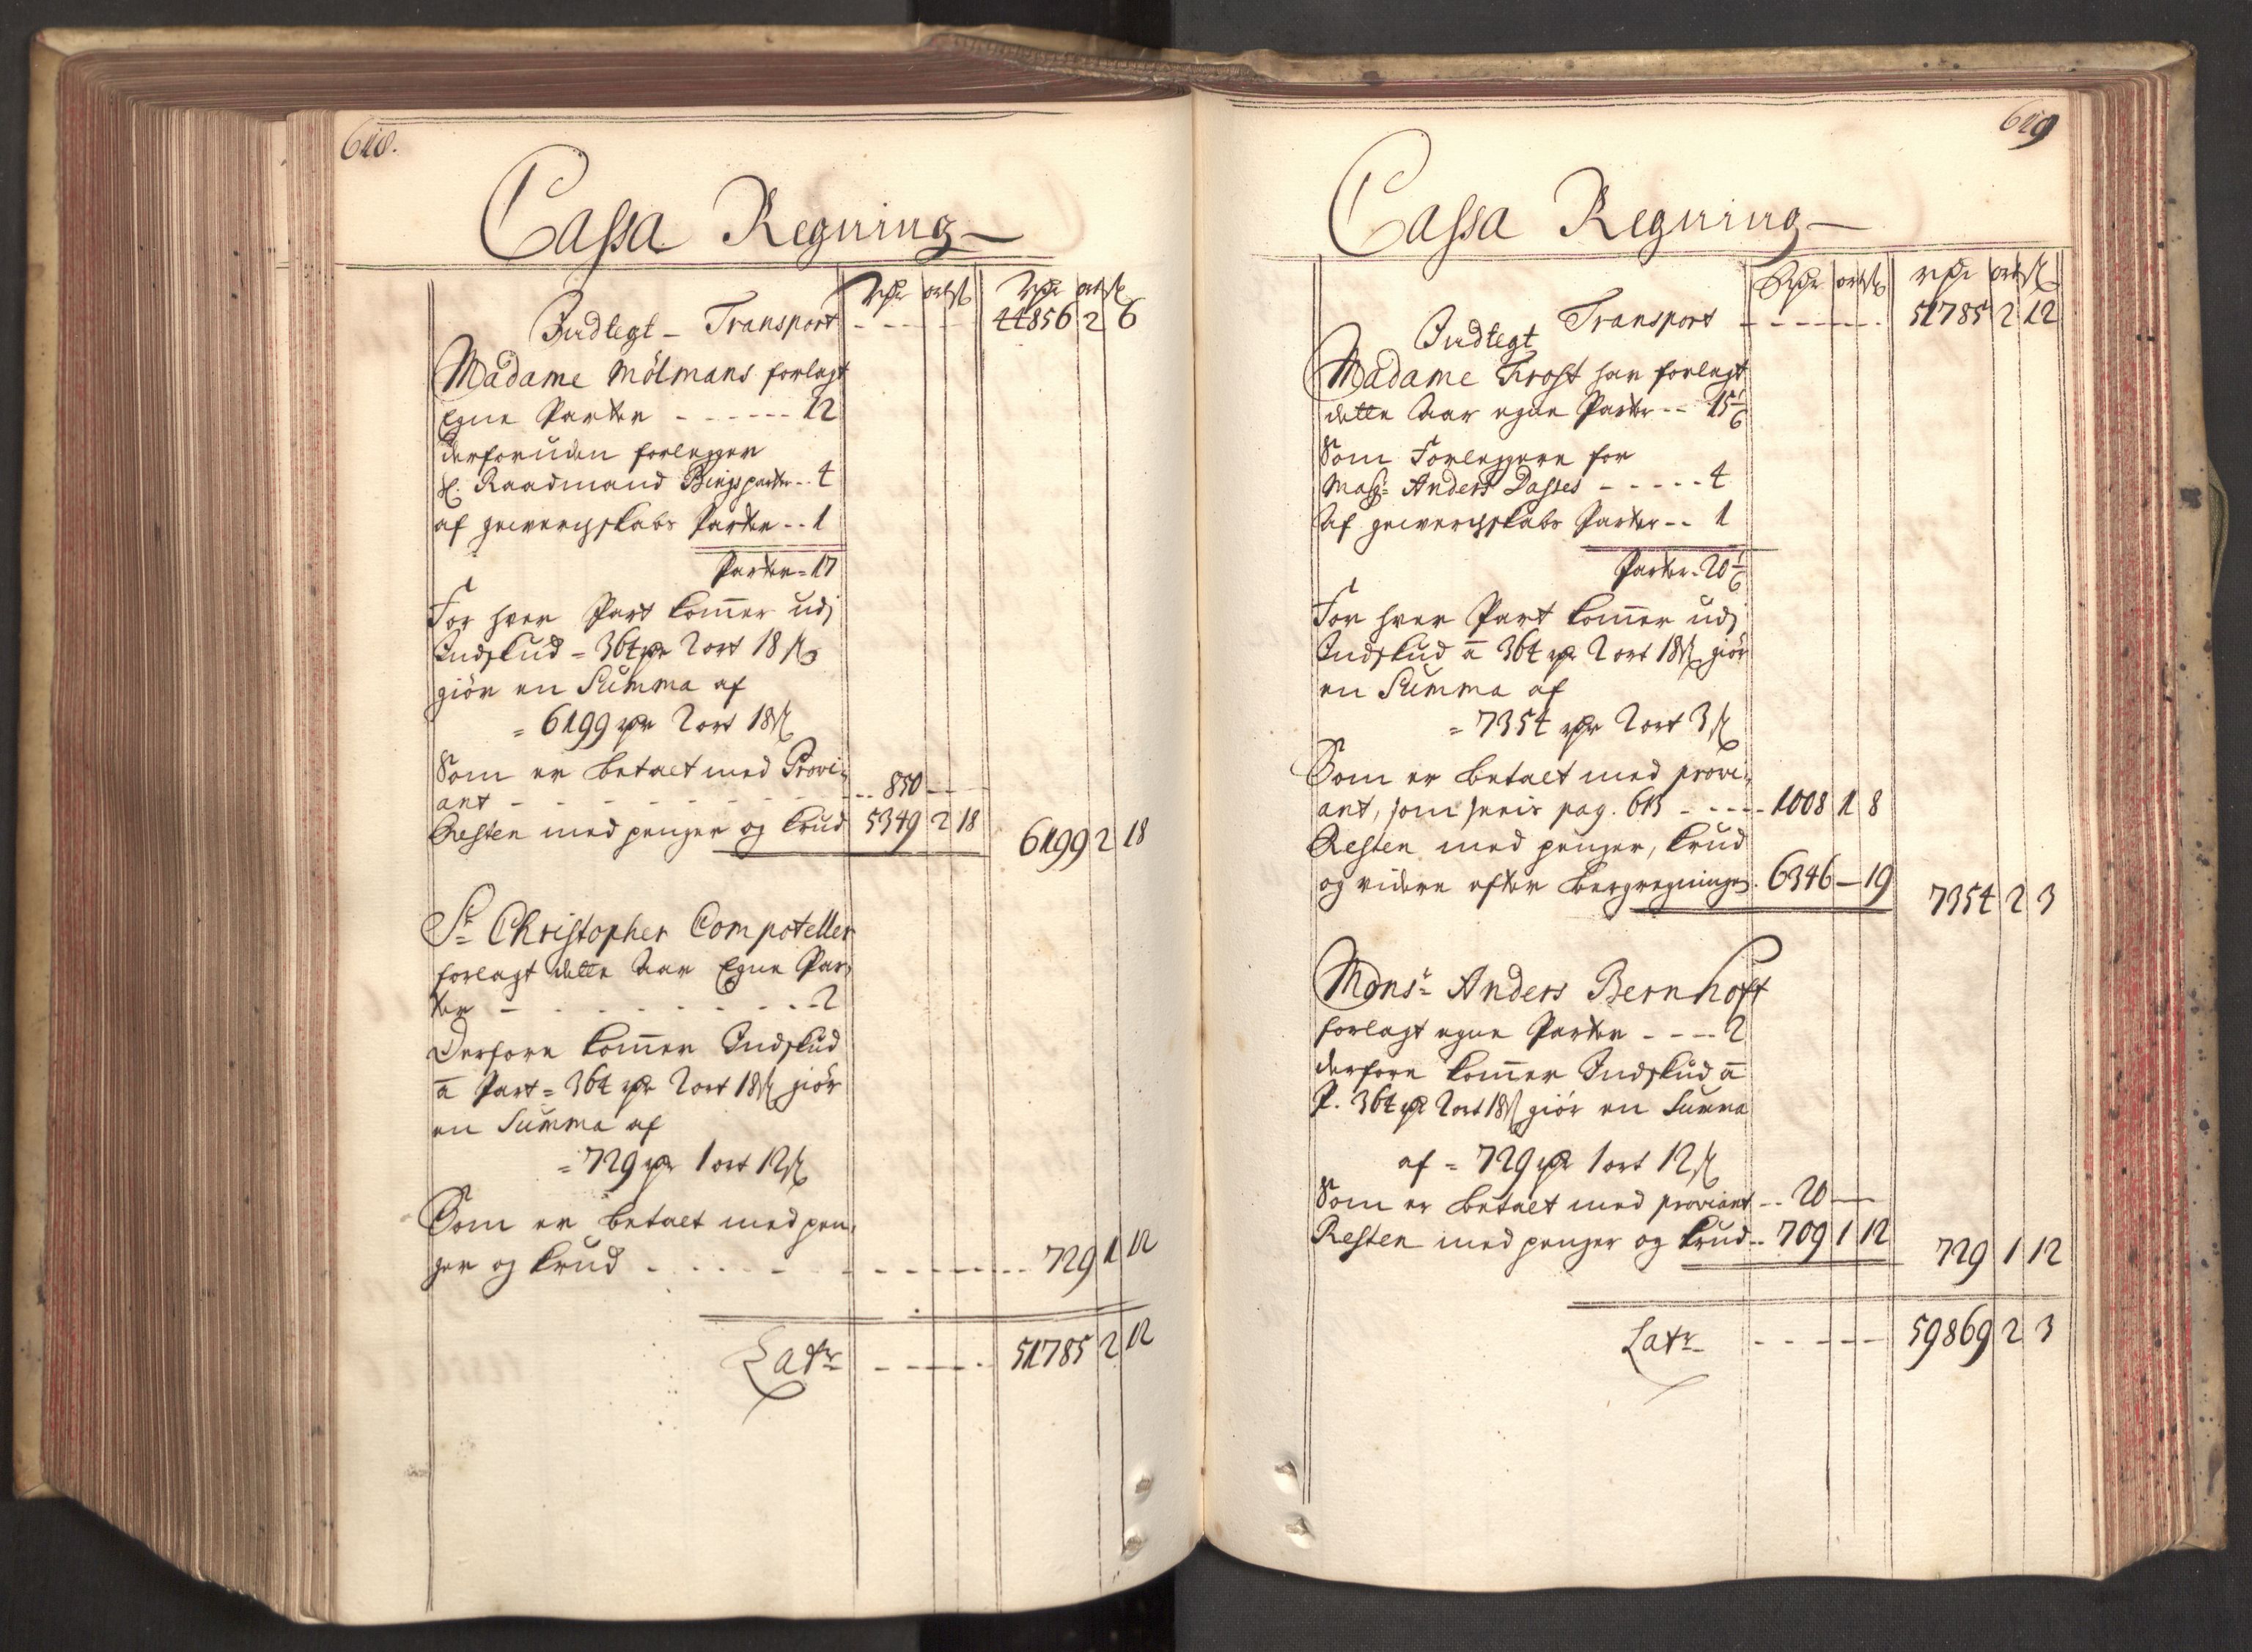 618.
Cassa Regning
rdr ort ß rdr ort ß
Indlegt - Transport - - - - 44856 2 6
Madame Mölmans forlagt
Egne Parter - - - - - - 12
derforuden forlegger
H. Raadmand Bings parter - - 4
af gewerchskabs Parter - - 1
Parter = 17
For hver Part komer udj
Indskud = 364 rdr 2 ort 18 ß
giör en Summa af
= 6199 rdr 2 ort 18 ß
Som er betalt med Provi-
ant - - - - - - - - - - 850 - -
Resten med penger og Krud 5349 2 18 6199 2 18
Sr Christopher Compoteller
forlagt dette Aar Egne Par-
ter - - - - - - - - - 2
Derfore komer Indskud
a Part = 364 rdr 2 ort 18 ß giör
en Summa af
= 729 rdr 1 ort 12 ß
Som er betalt med pen-
ger og Krud - - - - - - - - - - 729 1 12
Latr - - - - 51785 2 12
619
Cassa Regning
rdr ort ß rdr ort ß
Indlegt Transport - - - - - - 51785 2 12
Madame Frost har forlagt
dette Aar egne Parter - - 15 1/6
Som Forleggere for
Mag: Anders Dasses - - - - - 4
af gewerchskabs Parter - - 1
Parter = 20 1/6
For hver Part komer udj
Indskud a 364 rdr 2 ort 18 ß giör
en Summa af
= 7354 rdr 2 ort 3 ß
Som er betalt med provi-
ant, som sees pag. 613 - - - - 1008 1 8
Resten med penger, Krud
og videre efter bergregningen. 6346 - 19 7354 2 3
Monsr Anders Bernhoft
forlagt egne Parter - - - - 2
derfore komer Indskud a
P. 364 rdr 2 ort 18 ß giör en Summa
af = 729 rdr 1 ort 12 ß
Som er betalt med proviant - - 20 -
Resten med penger og Krud - - 709 1 12 729 1 12
Latr - - - - - 59869 2 3